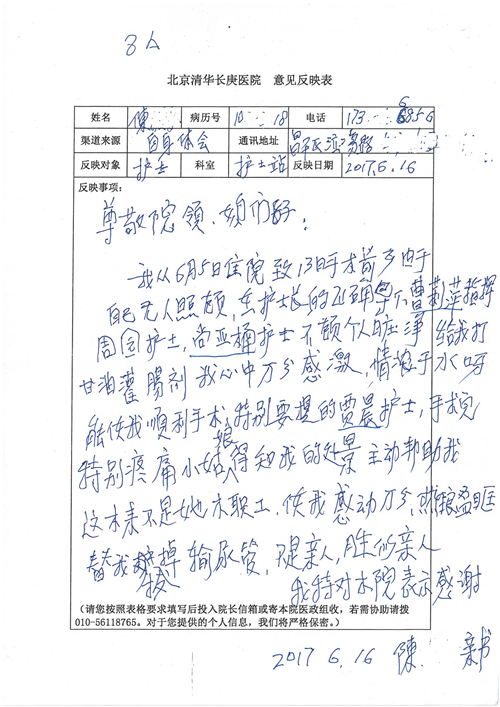 8A
北京清华长庚医院 意见反映表
姓名 陳 病历号 10 18 电话 173 6856
渠道来源 自身体会 通讯地址 昌平区
反映对象 护士 科室 护士站 反映日期 2017.6.16
反映事项：
尊敬院领、姐们好：
我从6月5日住院致13日手术前夕由于
自己无人照顾，在护士长的正确 曹莉萍指挥
周 护士，尚亚楠护士不顾个人脏净给我打
甘油灌腸剂 我心中万分感激，情浓于水呀
能使我順利手术，特别要提的贾晨护士，手术完
特别疼痛小姑娘得知我的处景主动帮助我
这本来不是她本职工，使我感动万分，热泪盈眶
替我拔掉输尿管，不是亲人，胜似亲人
我特对本院表示感谢
(请您按照表格要求填写后投入院长信箱或寄本院医政组收，若需协助请拨
010-56118765。对于您提供的个人信息，我们将严格保密。)
2017 6.16 陳 书